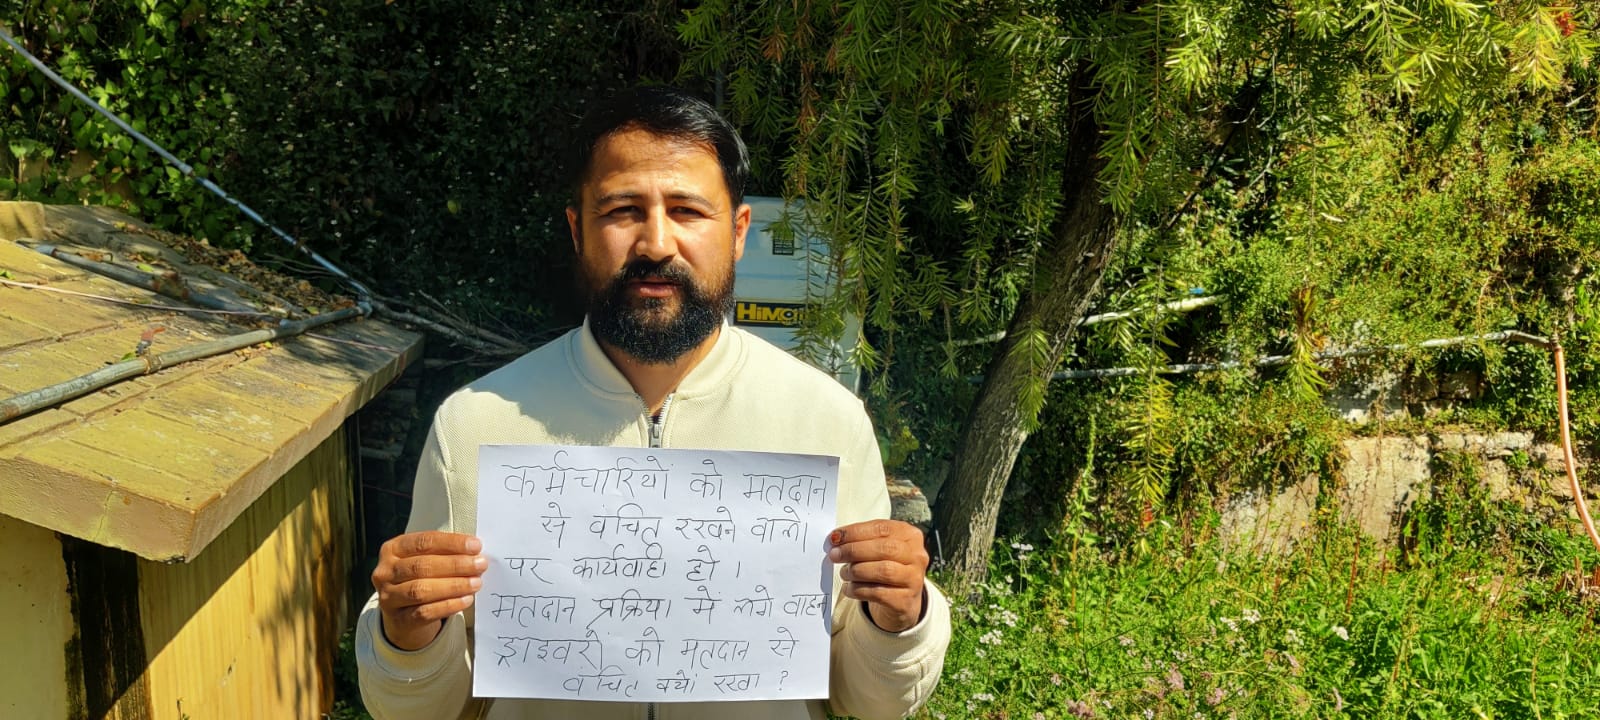 HiMa
कर्मचारियों को मतदान
से वंचित रखने वालों
पर कार्यवाही हो ।
मतदान प्रक्रिया में लगे वाहन
ड्राइवरों को मतदान से
वंचित क्यों रखा ?